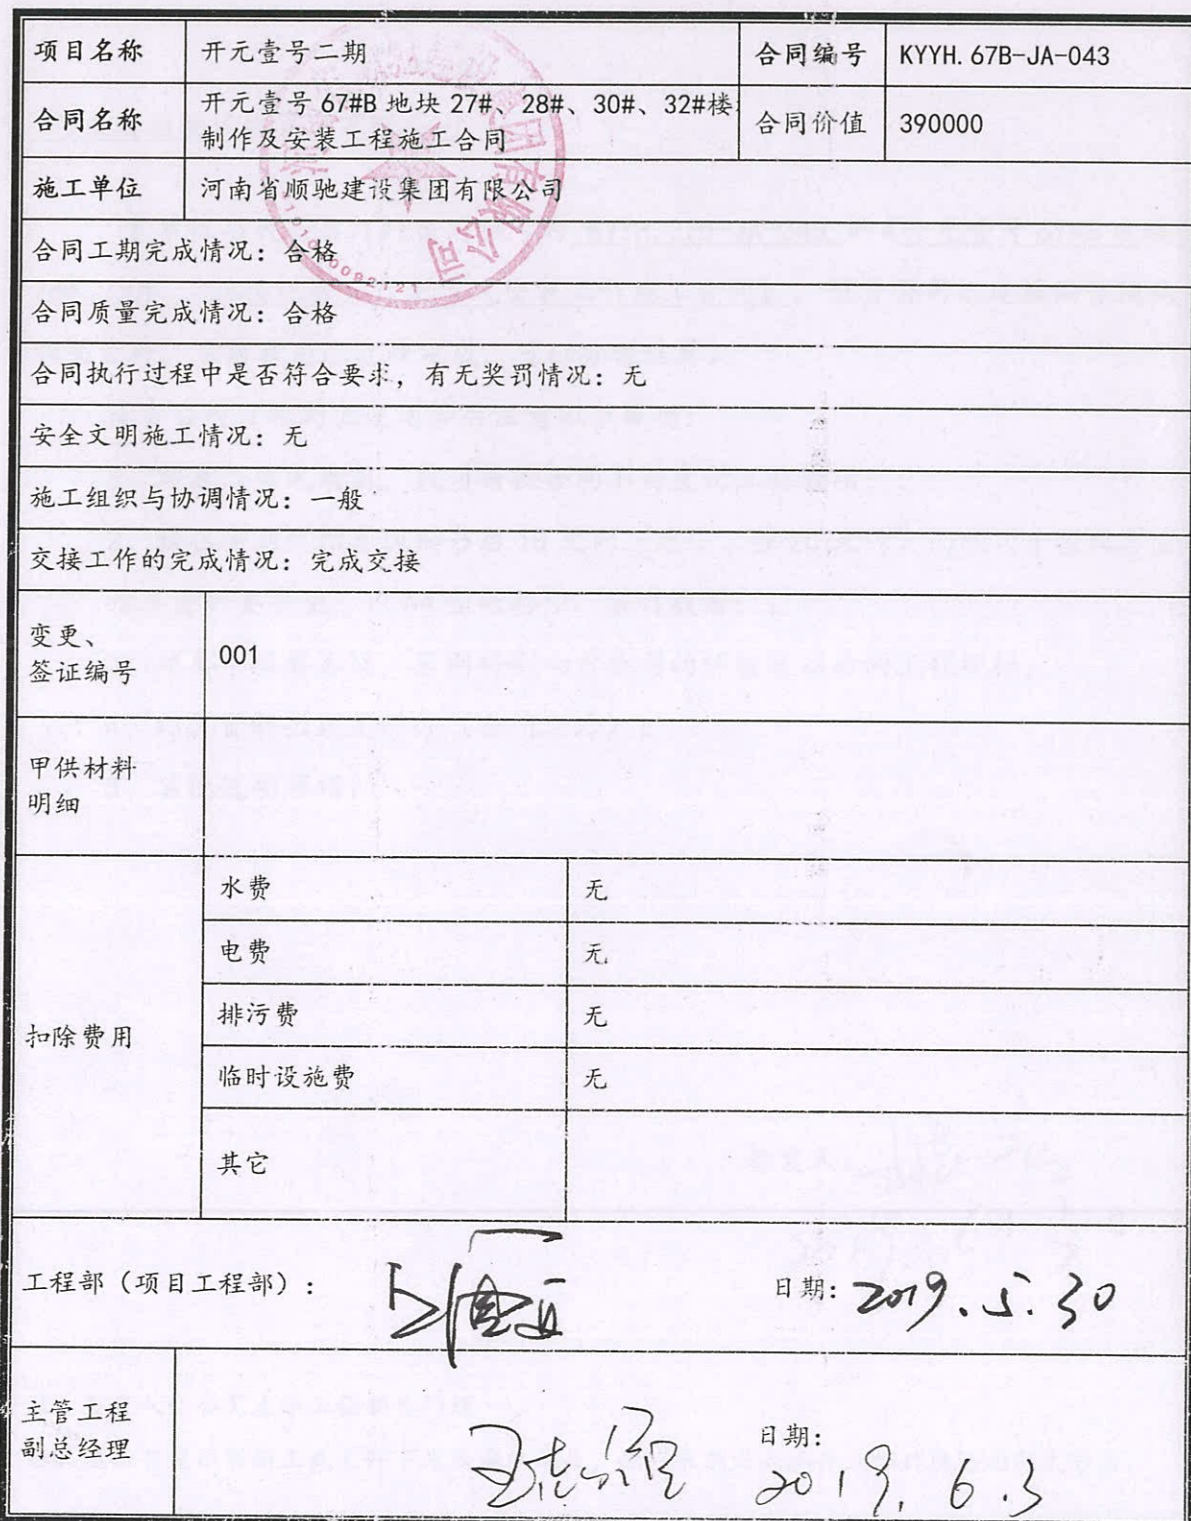 项目名称 开元壹号二期 合同编号 KYYH.67B-JA-043
合同名称 开元壹号 67#B 地块 27#、28#、30#、32#楼 合同价值 390000
制作及安装工程施工合同
施工单位 河南省顺驰建设集团有限公司
合同工期完成情况：合格
合同质量完成情况：合格
合同执行过程中是否符合要求，有无奖罚情况：无
安全文明施工情况：无
施工组织与协调情况：一般
交接工作的完成情况：完成交接
变更、
签证编号 001
甲供材料
明细
扣除费用
水费 无
电费 无
排污费 无
临时设施费 无
其它
工程部（项目工程部）： 日期：2019.5.30
主管工程
副总经理 日期：
2019.6.3